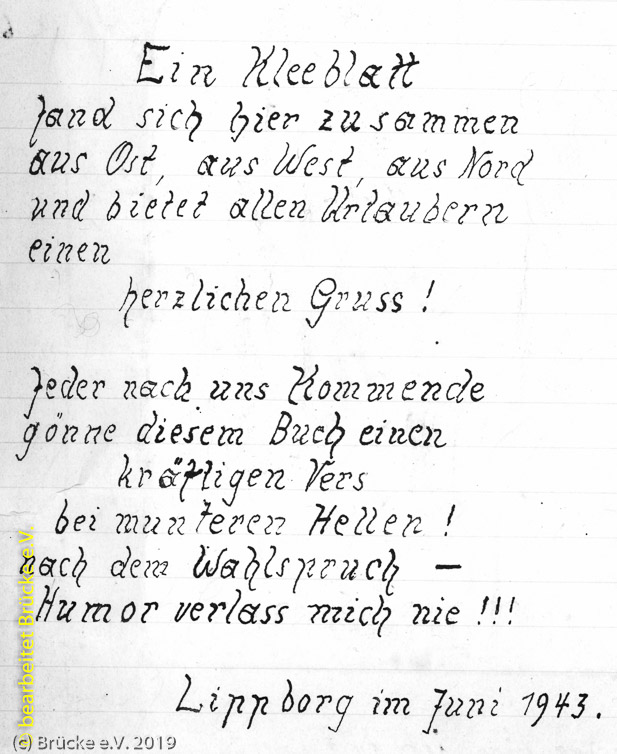 Ein Kleeblatt
fand sich hier zusammen
aus Ost, aus West, aus Nord
und bietet allen Urlaubern
einen
herzlichen Gruss!
Jeder nach uns Kommende
gönne diesem Buch einen
kräftigen Vers
bei munteren Hellen!
nach dem Wahlspruch —
Humor verlass mich nie!!!
Lippborg im Juni 1943.
© bearbeitet Brücke e.V.
(c) Brücke e.V. 2019